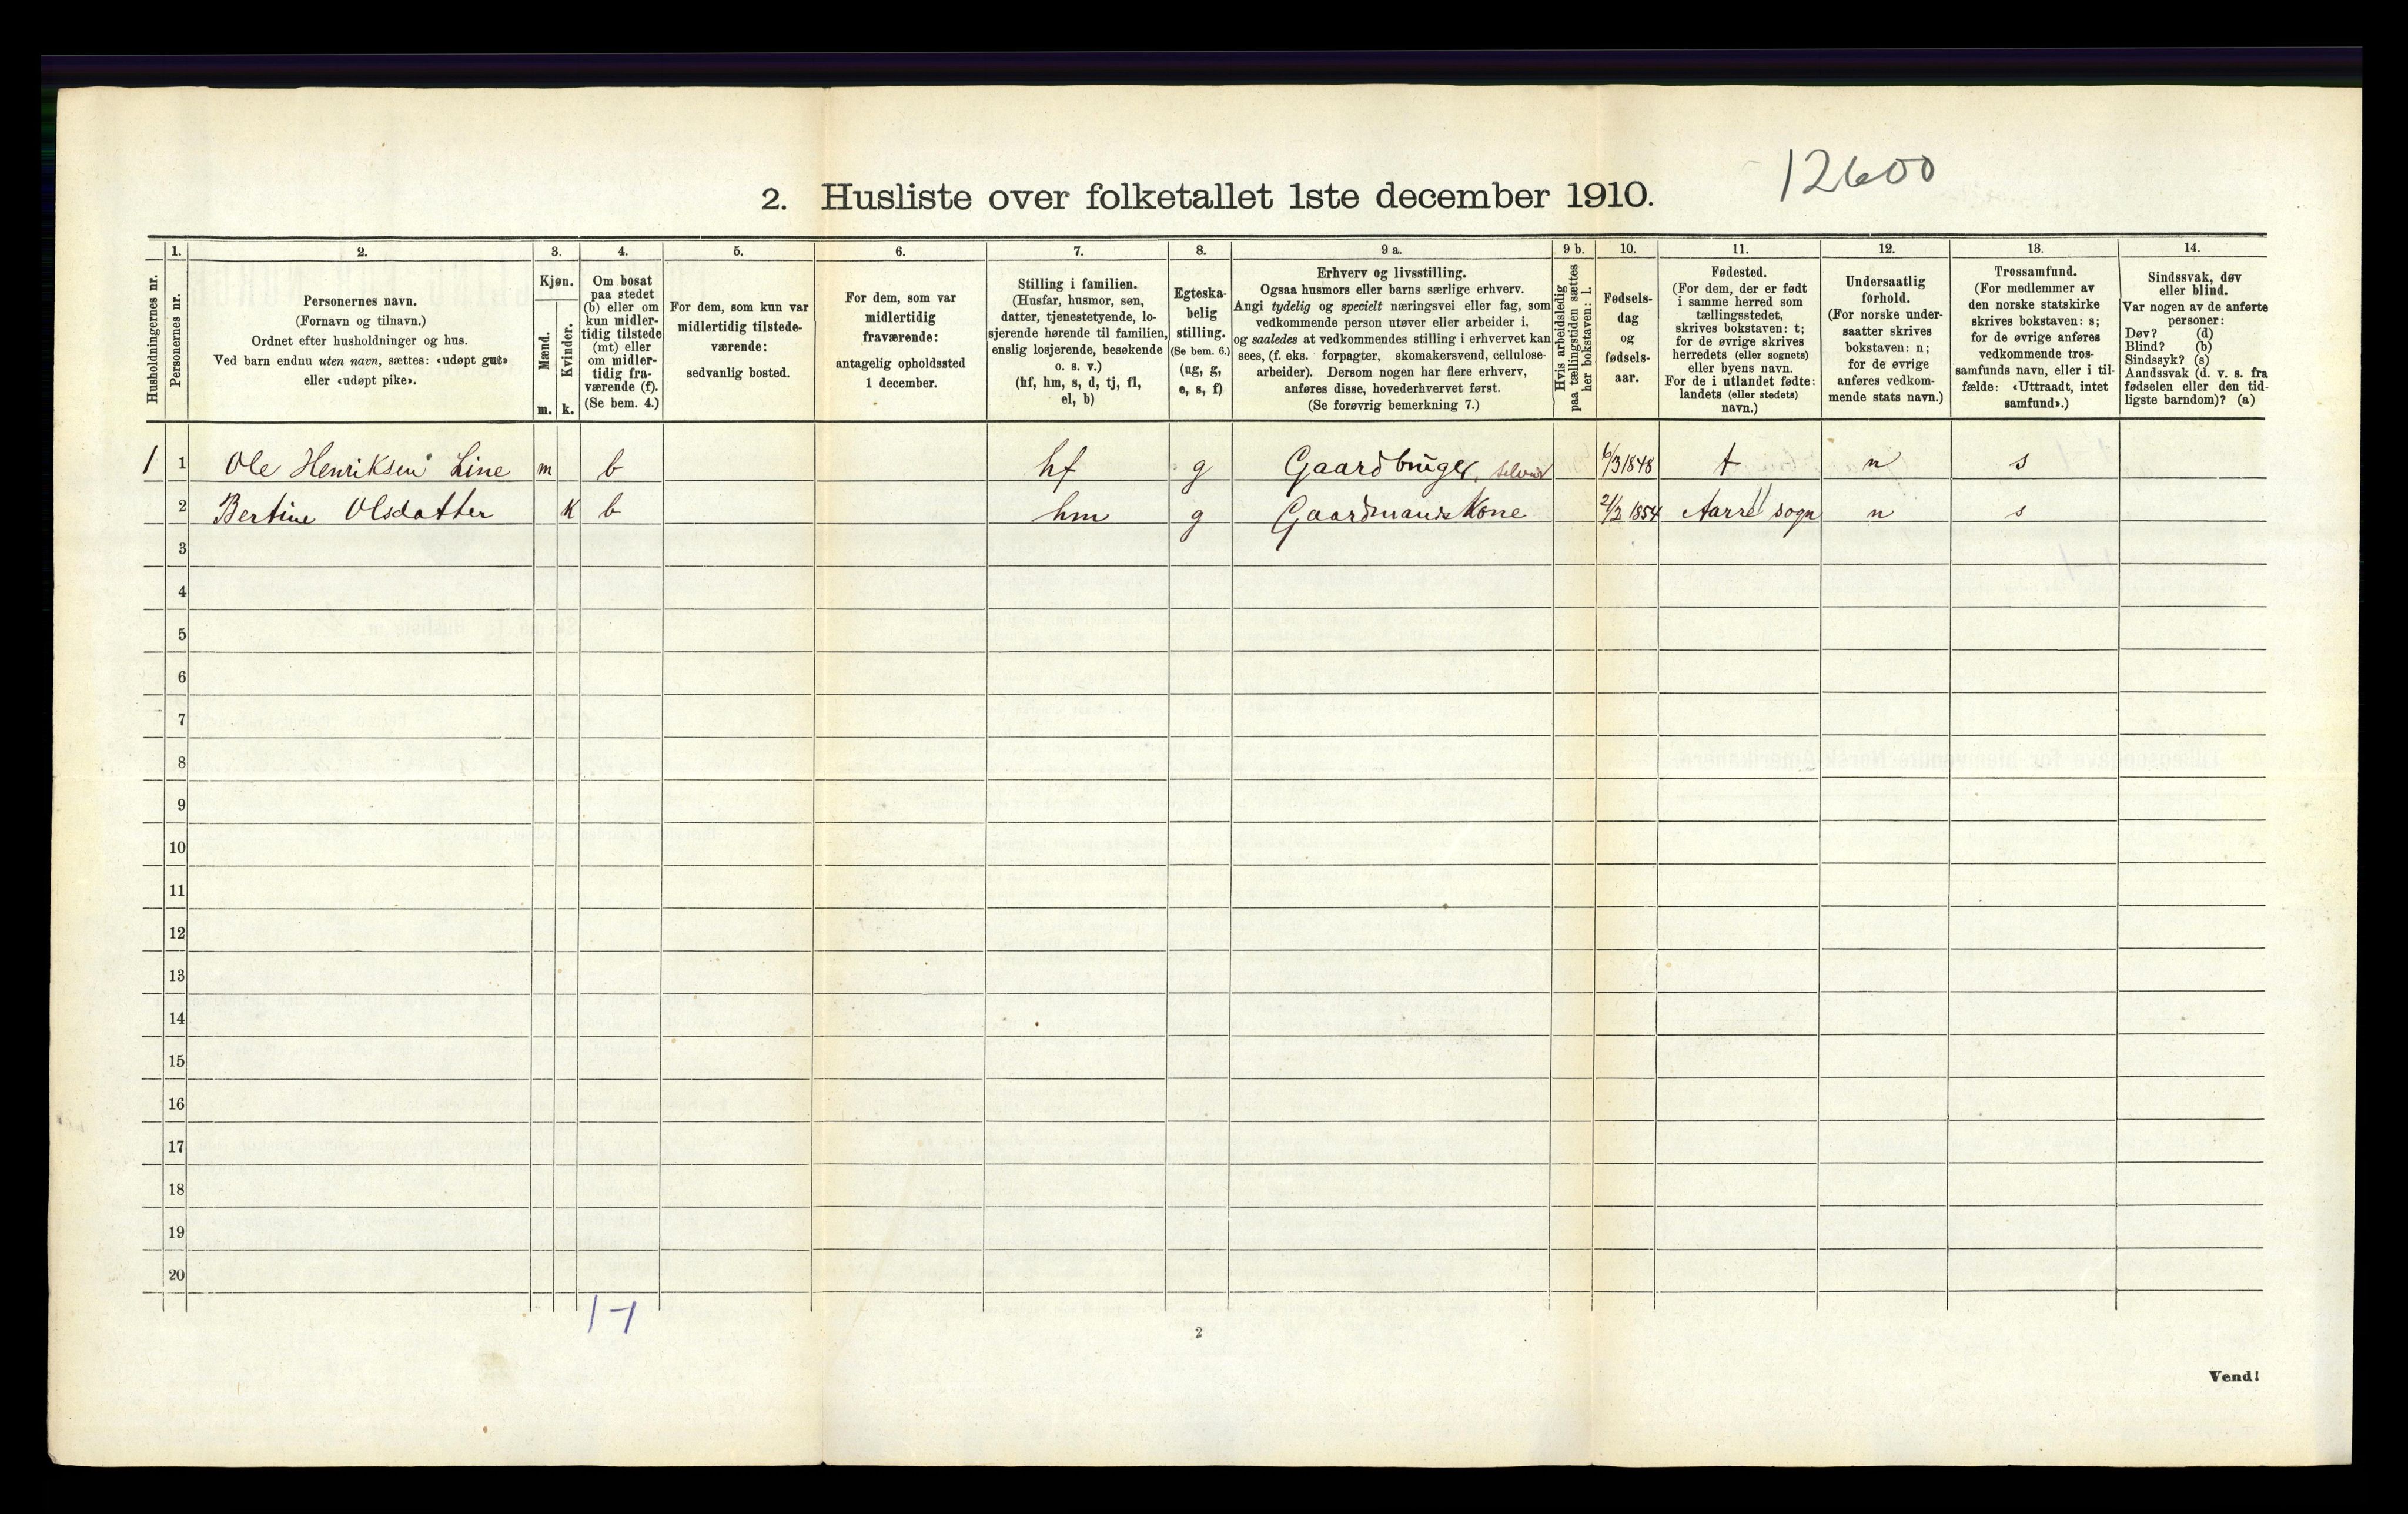 12600
2. Husliste over folketallet 1ste december 1910.
1. 2. 3. 4. 5. 6. 7. 8. 9 a. 9 b. 10. 11. 12. 13. 14.
Husholdningernes nr.
Personernes nr.
Personernes navn.
(Fornavn og tilnavn.)
Ordnet efter husholdninger og hus.
Ved barn endnu uten navn, sættes: «udøpt gut»
eller «udøpt pike».
Kjøn.
Mænd.
Kvinder.
m. k.
Om bosat
paa stedet
(b) eller om
kun midler-
tidig tilstede
(mt) eller
om midler-
tidig fra-
værende (f).
(Se bem. 4.)
For dem, som kun var
midlertidig tilstede-
værende:
sedvanlig bosted.
For dem, som var
midlertidig
fraværende:
antagelig opholdssted
1 december.
Stilling i familien.
(Husfar, husmor, søn,
datter, tjenestetyende, lo-
sjerende hørende til familien,
enslig losjerende, besøkende
o. s. v.)
(hf, hm, s, d, tj, fl,
el, b)
Egteska-
belig
stilling.
(Se bem. 6.)
(ug, g,
e, s, f)
Erhverv og livsstilling.
Ogsaa husmors eller barns særlige erhverv.
Angi tydelig og specielt næringsvei eller fag, som
vedkommende person utøver eller arbeider i,
og saaledes at vedkommendes stilling i erhvervet kan
sees, (f. eks. forpagter, skomakersvend, cellulose-
arbeider). Dersom nogen har flere erhverv,
anføres disse, hovederhvervet først.
(Se forøvrig bemerkning 7.)
Hvis arbeidsledig
paa tællingstiden sættes
her bokstaven: l.
Fødsels-
dag
og
fødsels-
aar.
Fødested.
(For dem, der er født
i samme herred som
tællingsstedet,
skrives bokstaven: t;
for de øvrige skrives
herredets (eller sognets)
eller byens navn.
For de i utlandet fødte:
landets (eller stedets)
navn.)
Undersaatlig
forhold.
(For norske under-
saatter skrives
bokstaven: n;
for de øvrige
anføres vedkom-
mende stats navn.)
Trossamfund.
(For medlemmer av
den norske statskirke
skrives bokstaven: s;
for de øvrige anføres
vedkommende tros-
samfunds navn, eller i til-
fælde: «Uttraadt, intet
samfund».)
Sindssvak, døv
eller blind.
Var nogen av de anførte
personer:
Døv? (d)
Blind? (b)
Sindssyk? (s)
Aandssvak (d. v. s. fra
fødselen eller den tid-
ligste barndom)? (a)
1 1 Ole Henriksen Line m b hf g Gaardbruger, selveier 6/3 1848 t n s
2 Bertine Olsdatter K b hm g Gaardmands Kone 2/2 1854 Aarre sogn n s
3
4
5
6
7
8
9
10
11
12
13
14
15
16
17
18
19
20
1-1
2
Vend!